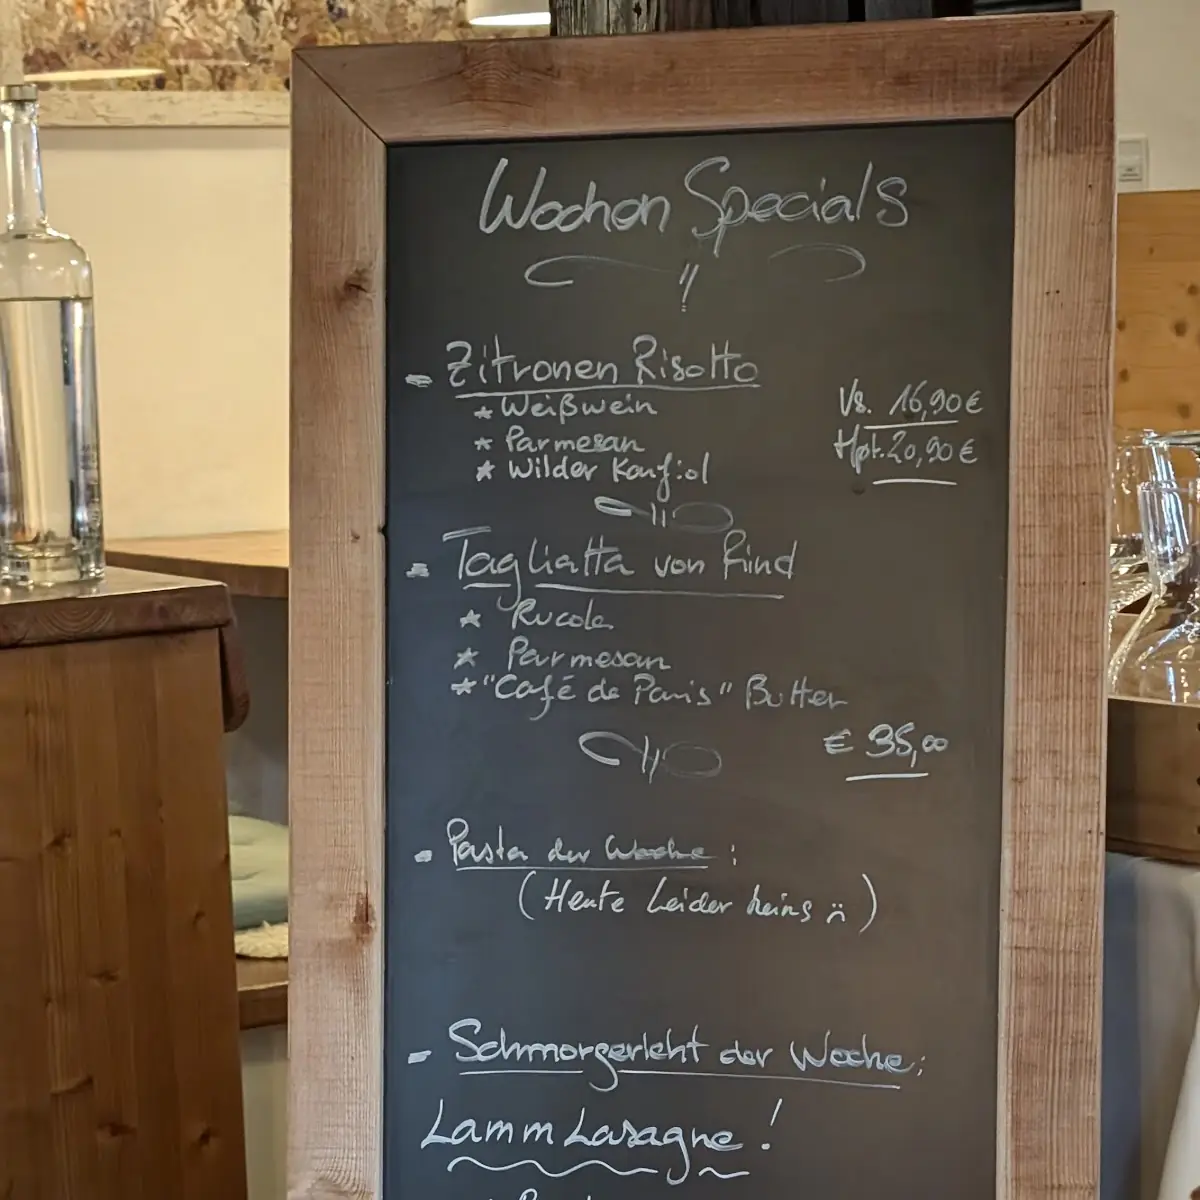 Wochen Specials
- Zitronen Risotto
* Weißwein
Vs. 16,90€
* Parmesan
Hpt. 20,90€
* Wilder Karfiol
- Tagliatta von Rind
* Rucola
* Parmesan
* "Café de Paris" Butter
€ 35,00
- Pasta der Woche:
(Heute Leider keins )
- Schmorgericht der Woche:
Lamm Lasagne!